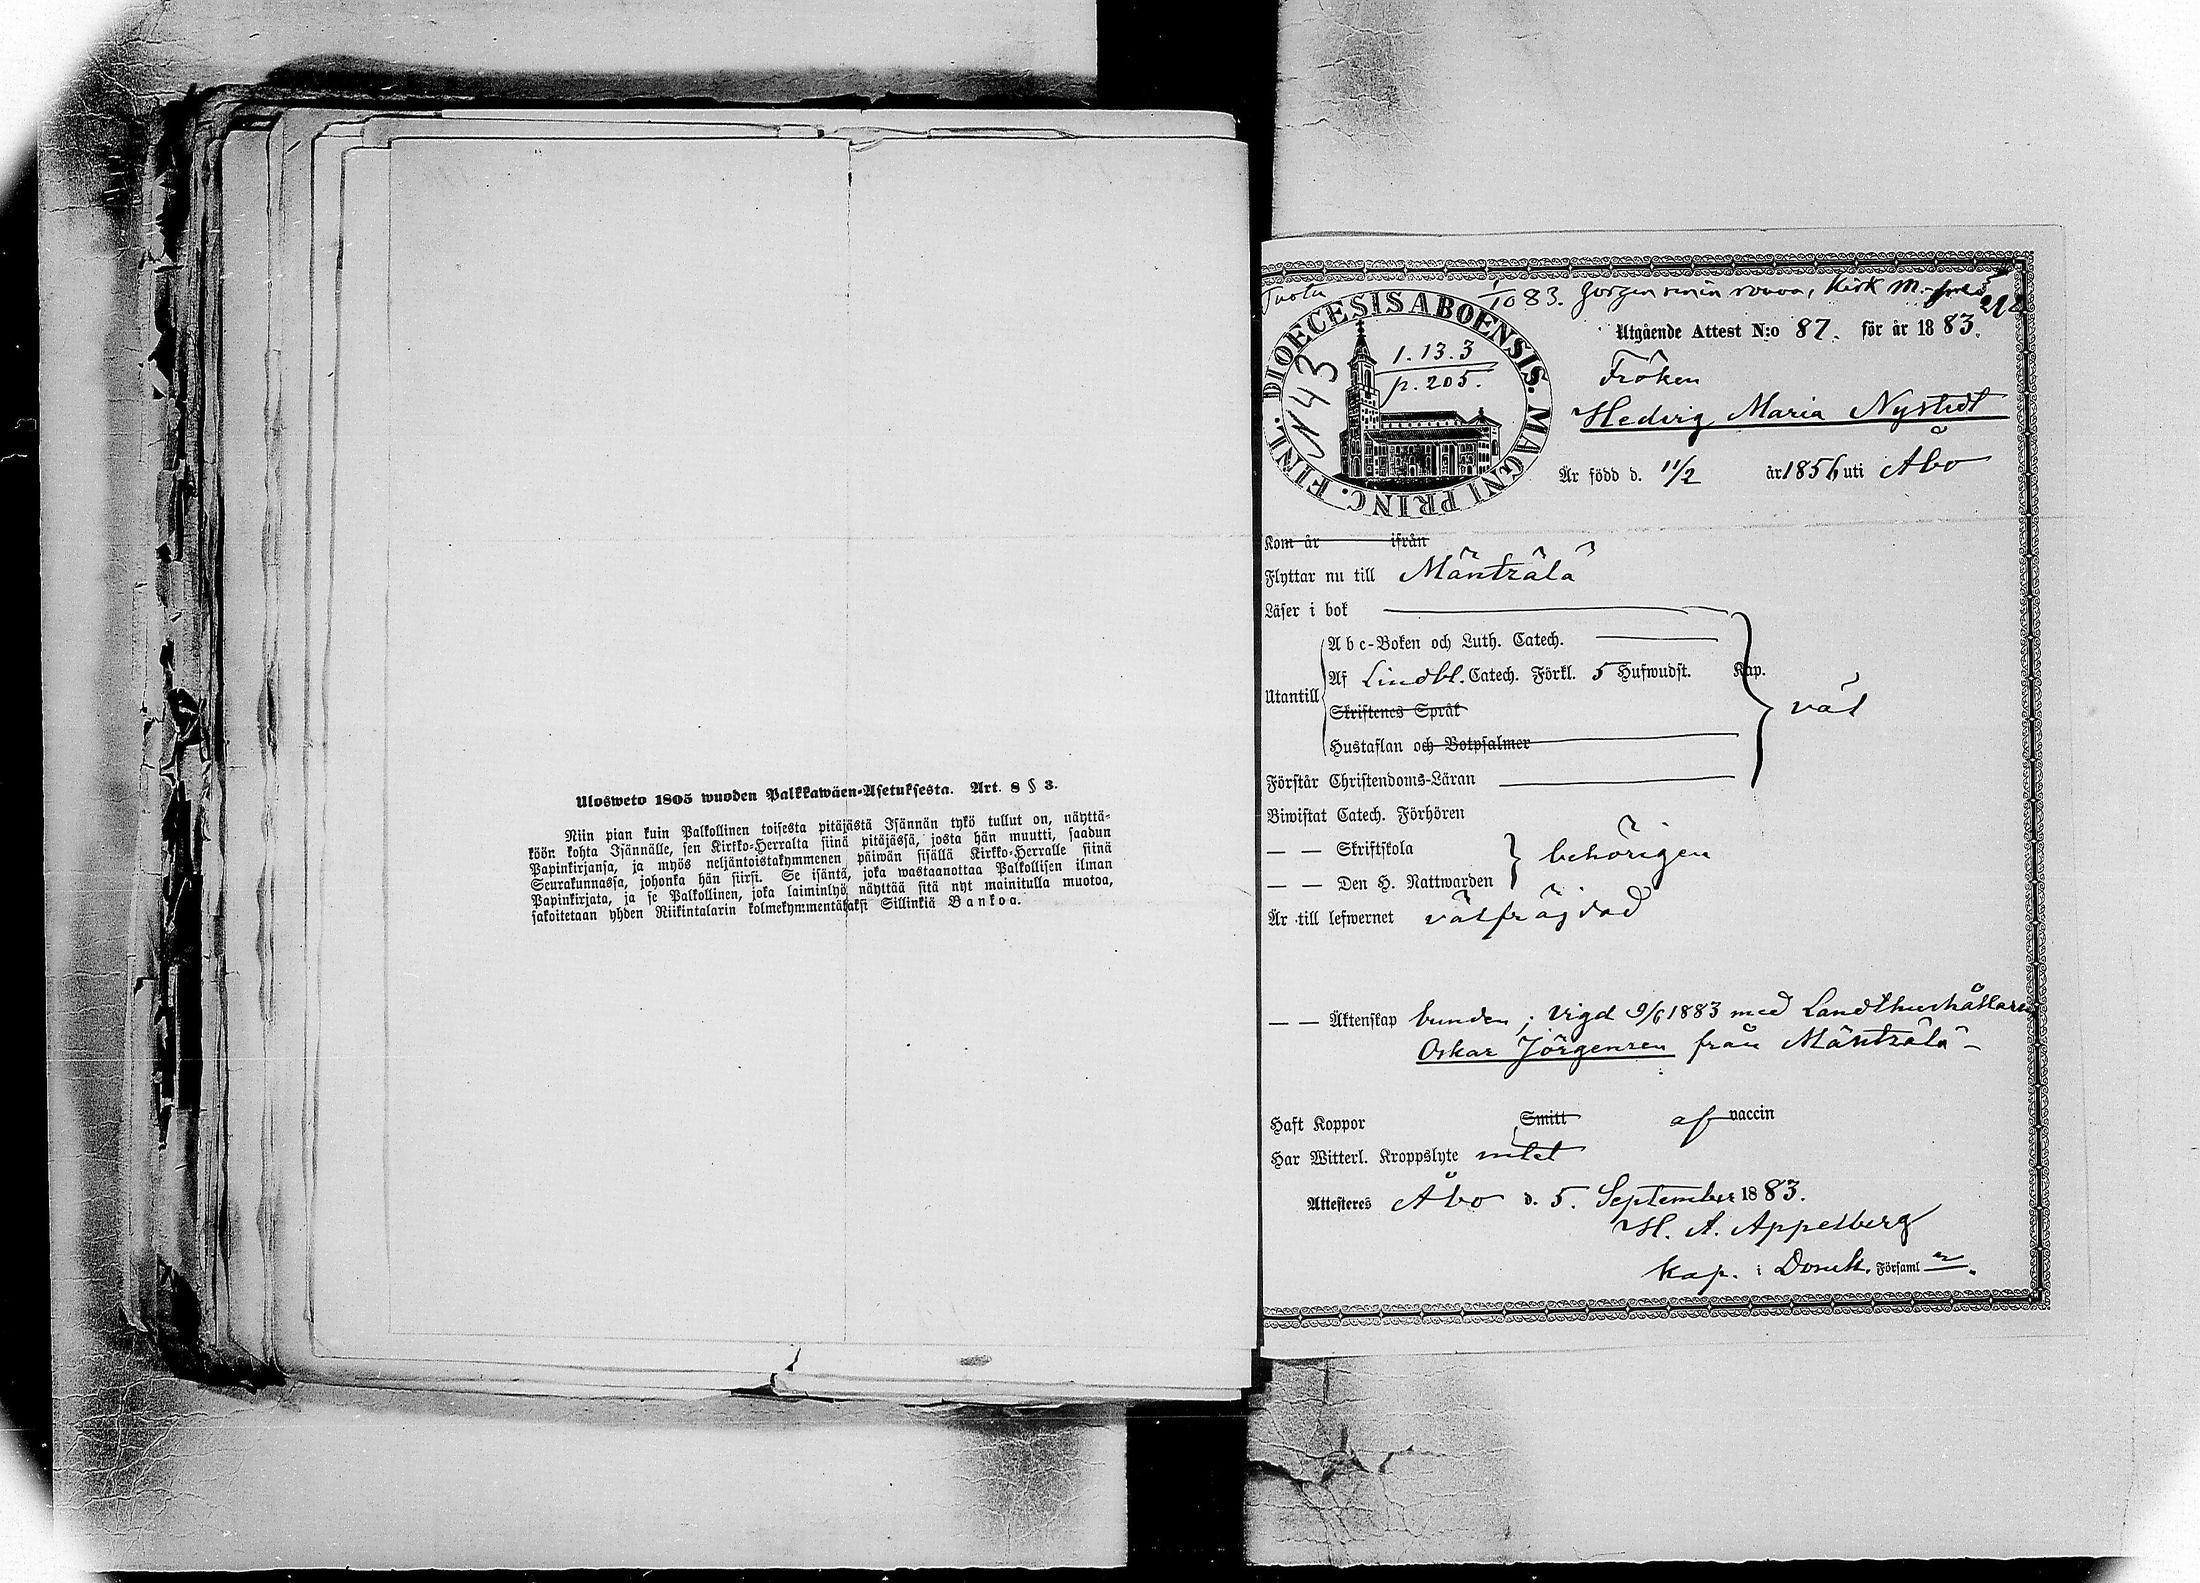 Ulosweto 1805 wuoden Palkkawäen-Asetuksesta. Art. 8 § 3.
Niin pian kuin Palkollinen toisesta pitäjästä Isännän tykö tullut on, näyttä-
köön kohta Isännälle, sen Kirkko-Herralta siinä pitäjässä, josta hän muutti, saadun
Papinkirjansa, ja myös neljäntoistakymmenen päiwän sisällä Kirkko-Herralle siinä
Seurakunnassa, johonka hän siirsi. Se isäntä, joka wastaanottaa Palkollisen ilman
Papinkirjata, ja se Palkollinen, joka laiminlyö näyttää sitä nyt mainitulla muotoa,
sakoitetaan yhden Riikintalarin kolmekymmentäkaksi Sillinkiä Bankoa.
1/10 83. Kirk M.
DIOECESIS ABOENSIS. MAGNI PRINC. FINL.
N 43
1.13.3
p. 205.
Utgående Attest N:o 87. för år 1883.
Fröken
Hedvig Maria Nystedt
Är född d. 11/2 år 1856 uti Åbo
Kom år ifrån
Flyttar nu till Mänträlä
Läser i bok
Utantill
Abc-Boken och Luth. Catech.
Af Lindbl. Catech. Förkl. 5 Hufwudst. Kap.
väl
Skriftenes Språk
Hustaflan och Botpsalmer
Förstår Christendoms-Läran
Biwistat Catech. Förhören
— — Skriftskola
behörigen
— — Den H. Nattwarden
Är till lefwernet välfräjdad
— — Äktenskap bunden; vigd 9/6 1883 med Landthushållaren
Oskar Jörgensen från Mänträlä
Haft Koppor Smitt af vaccin
Har Witterl. Kroppslyte intet
Attesteres Åbo d. 5. September 1883.
H. A. Appelberg
Kap. i Domk. Församl n.